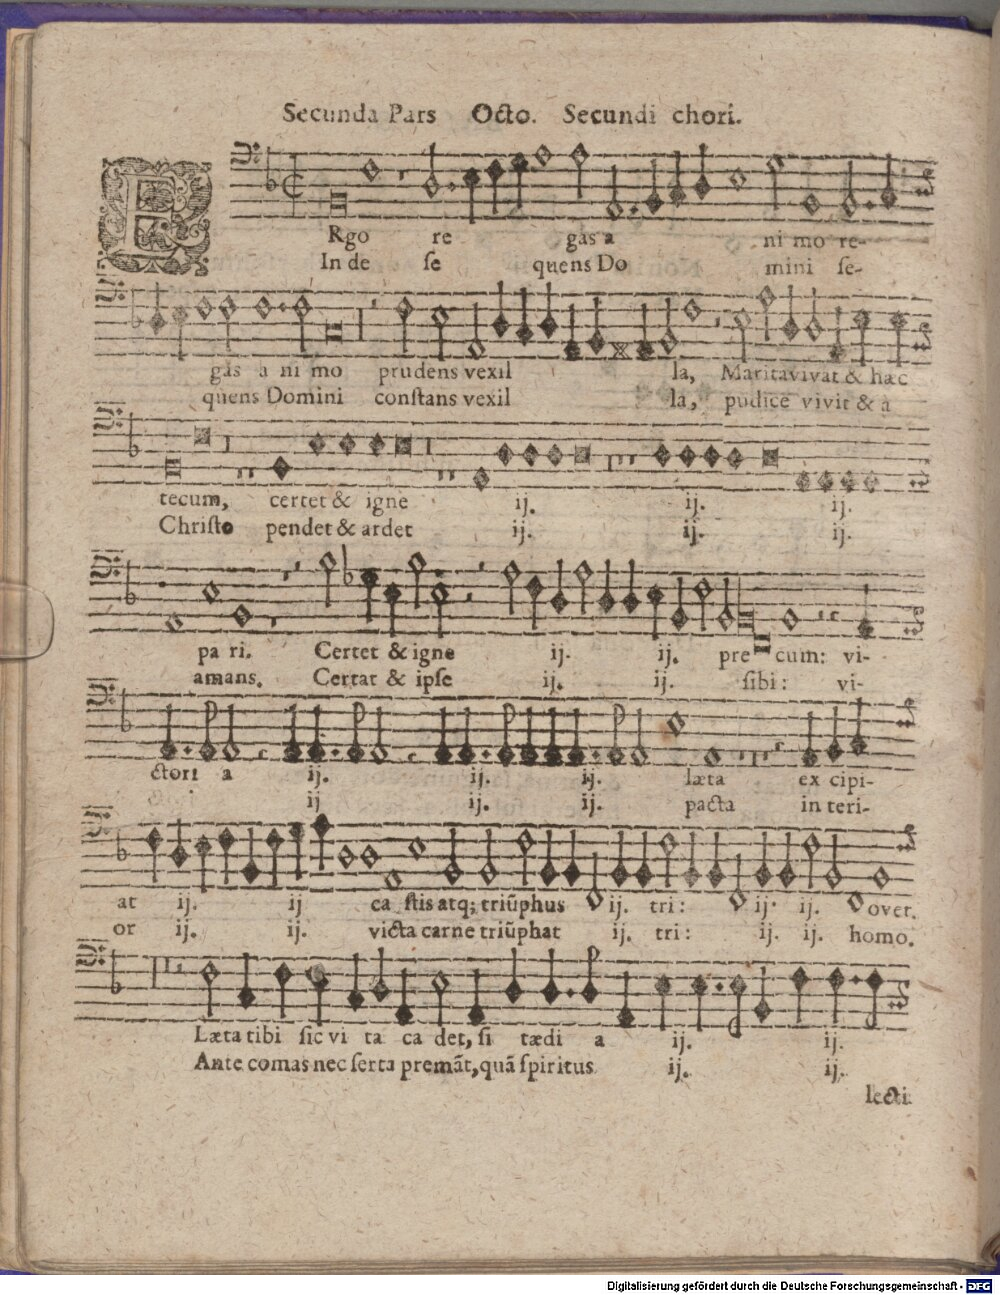 Secunda Pars Octo. Secundi chori.
ERgo re gas a ni mo re-
In de se quens Do mini se-
gas a ni mo prudens vexil la, Maritavivat & hæc
quens Domini constans vexil la, pudice vivit & à
tecum, certet & igne ij. ij. ij.
Christo pendet & ardet ij. ij. ij.
pa ri. Certet & igne ij. ij. pre cum: vi-
amans. Certat & ipse ij. ij. sibi: vi-
ctori a ij. ij. ij. læta ex cipi-
ij ij. ij. pacta in teri-
at ij. ij ca stis atq; triũphus ij. tri: ij. ij. over.
or ij. ij. victa carne triũphat ij. tri: ij. ij. homo.
Læta tibi sic vi ta ca det, si tædi a ij. ij.
Ante comas nec serta premãt, quã spiritus ij. ij.
lecti.
Digitalisierung gefördert durch die Deutsche Forschungsgemeinschaft - DFG